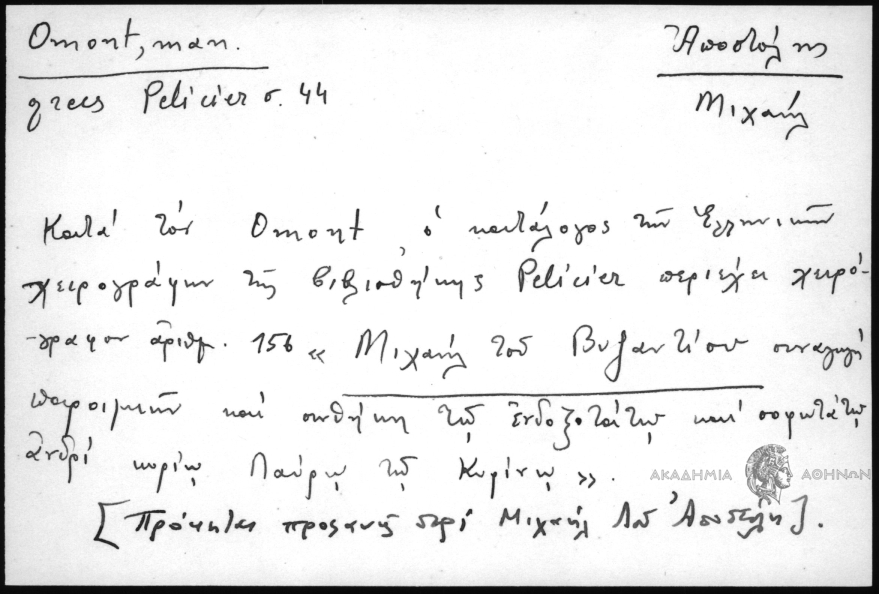 Omont, man.
grecs Pelicier σ. 44
Ἀποστόλης
Μιχαήλ
Κατά τόν Omont, ὁ κατάλογος τῶν Ἑλληνικῶν
χειρογράφων τῆς βιβλιοθήκης Pelicier περιέχει χειρό-
-γραφον ἀριθμ. 156 « Μιχαήλ τοῦ Βυζαντίου συναγωγή
παροιμιῶν καί συνθήκη τῷ ἐνδοξοτάτῳ καί σοφωτάτῳ
ἀνδρί κυρίῳ Λαύρῳ τῷ Κυρίνῳ ».
[Πρόκειται προφανῶς περί Μιχαήλ τοῦ Ἀποστόλη].
ΑΚΑΔΗΜΙΑ ΑΘΗΝΩΝ